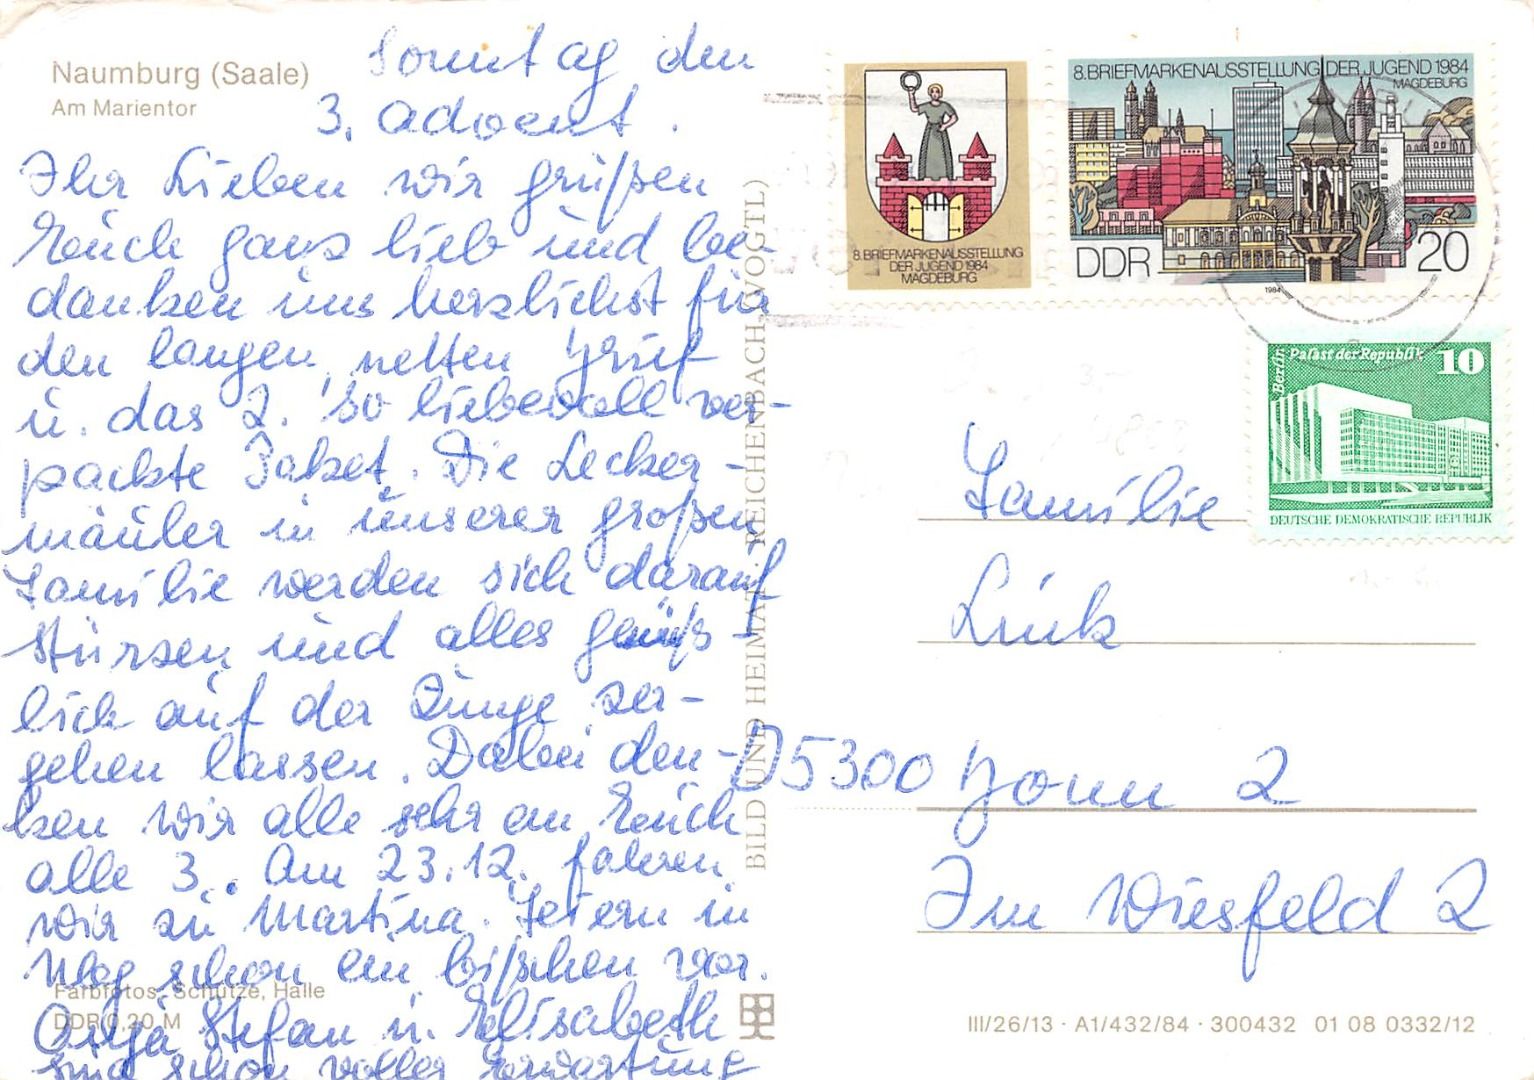 Naumburg (Saale)
Am Marientor
Sonntag den
3. Advent.
Ihr Lieben wir grüßen
Euch ganz lieb und be-
danken uns herzlichst für
den langen, netten Brief
u. das 2. so liebevoll ver-
packte Paket. Die Lecker-
mäuler in unserer großen
Familie werden sich darauf
stürzen und alles genüß-
lich auf der Zunge zer-
gehen lassen. Dabei den-
ken wir alle sehr an Euch
alle 3. Am 23.12. fahren
wir zu Martina. Feiern in
schon ein bißchen vor.
Stefan u. Elisabeth
sind schon voller Erwartung
Farbfotos: Schütze, Halle
DDR 0,20 M
BILD UND HEIMAT REICHENBACH (VOGTL)
8. BRIEFMARKENAUSSTELLUNG
DER JUGEND 1984
MAGDEBURG
8. BRIEFMARKENAUSSTELLUNG DER JUGEND 1984
MAGDEBURG
DDR 20
1984
Berlin Palast der Republik 10
DEUTSCHE DEMOKRATISCHE REPUBLIK
Familie
Link
D 5300 Bonn 2
Im Wiesfeld 2
III/26/13 · A1/432/84 · 300432 01 08 0332/12